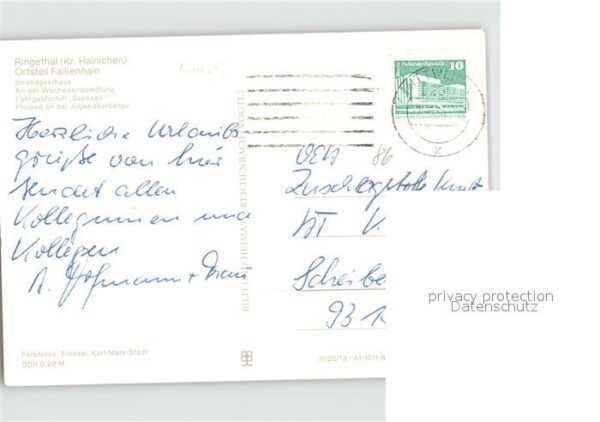 Ringethal (Kr. Hainichen)
Ortsteil Falkenhain
Strandgasthaus
An der Wochenendsiedlung
Fahrgastschiff „Sachsen"
Freibad an der Jugendherberge
Herzliche Urlaubs
grüße von hier
sendet allen
Kolleginnen und
Kollegen
A. Hofmann + Frau
Farbfotos: Frenzel, Karl-Marx-Stadt
DDR 0,20 M
BILD UND HEIMAT REICHENBACH (VOGTL)
10
VEB 86
Zuschlagstoffe
BT K
Scheibe
93
III/26/13 A1/1011/8
privacy protection
Datenschutz